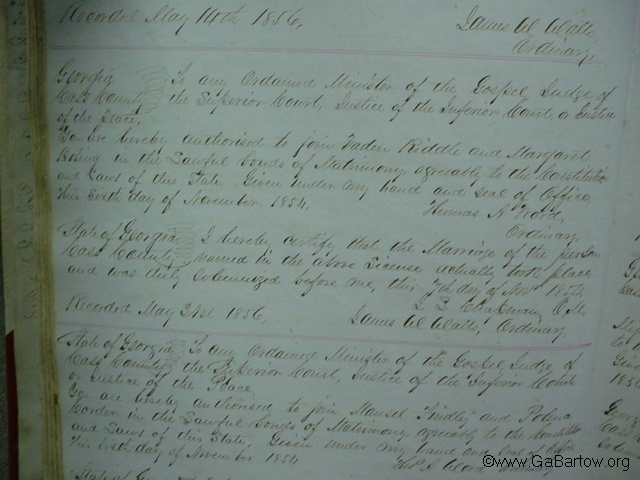 Recorded May 14th 1856,
James W Watts
Ordinary
Georgia To any Ordained Minister of the Gospel Judge of
Cass County the Superior Court, Justice of the Inferior Court, or Justice
of the place,
You are hereby authorised to join Riddle and Margaret
in the Lawful bonds of Matrimony agreeably to the Constitution
and Laws of this State Given under my hand and seal of Office
this Sixth day of November 1854,
Thomas A Word,
Ordinary
State of Georgia I hereby certify that the Marriage of the person
Cass County named in the above License actually took place
and was duly Solemnized before me, this 7th day of Novr 1854,
Recorded May 31st 1856,
James W Watts, Ordinary
State of Georgia To any Ordained Minister of the Gospel Judge of
Cass County the Superior Court, Justice of the Inferior Court
or Justice of the Place
You are hereby authorised to join and
in the Lawful bonds of Matrimony agreeably to the
and Laws of this State, Given under my hand and
this Sixth day of November 1854
State of
©www.GaBartow.org